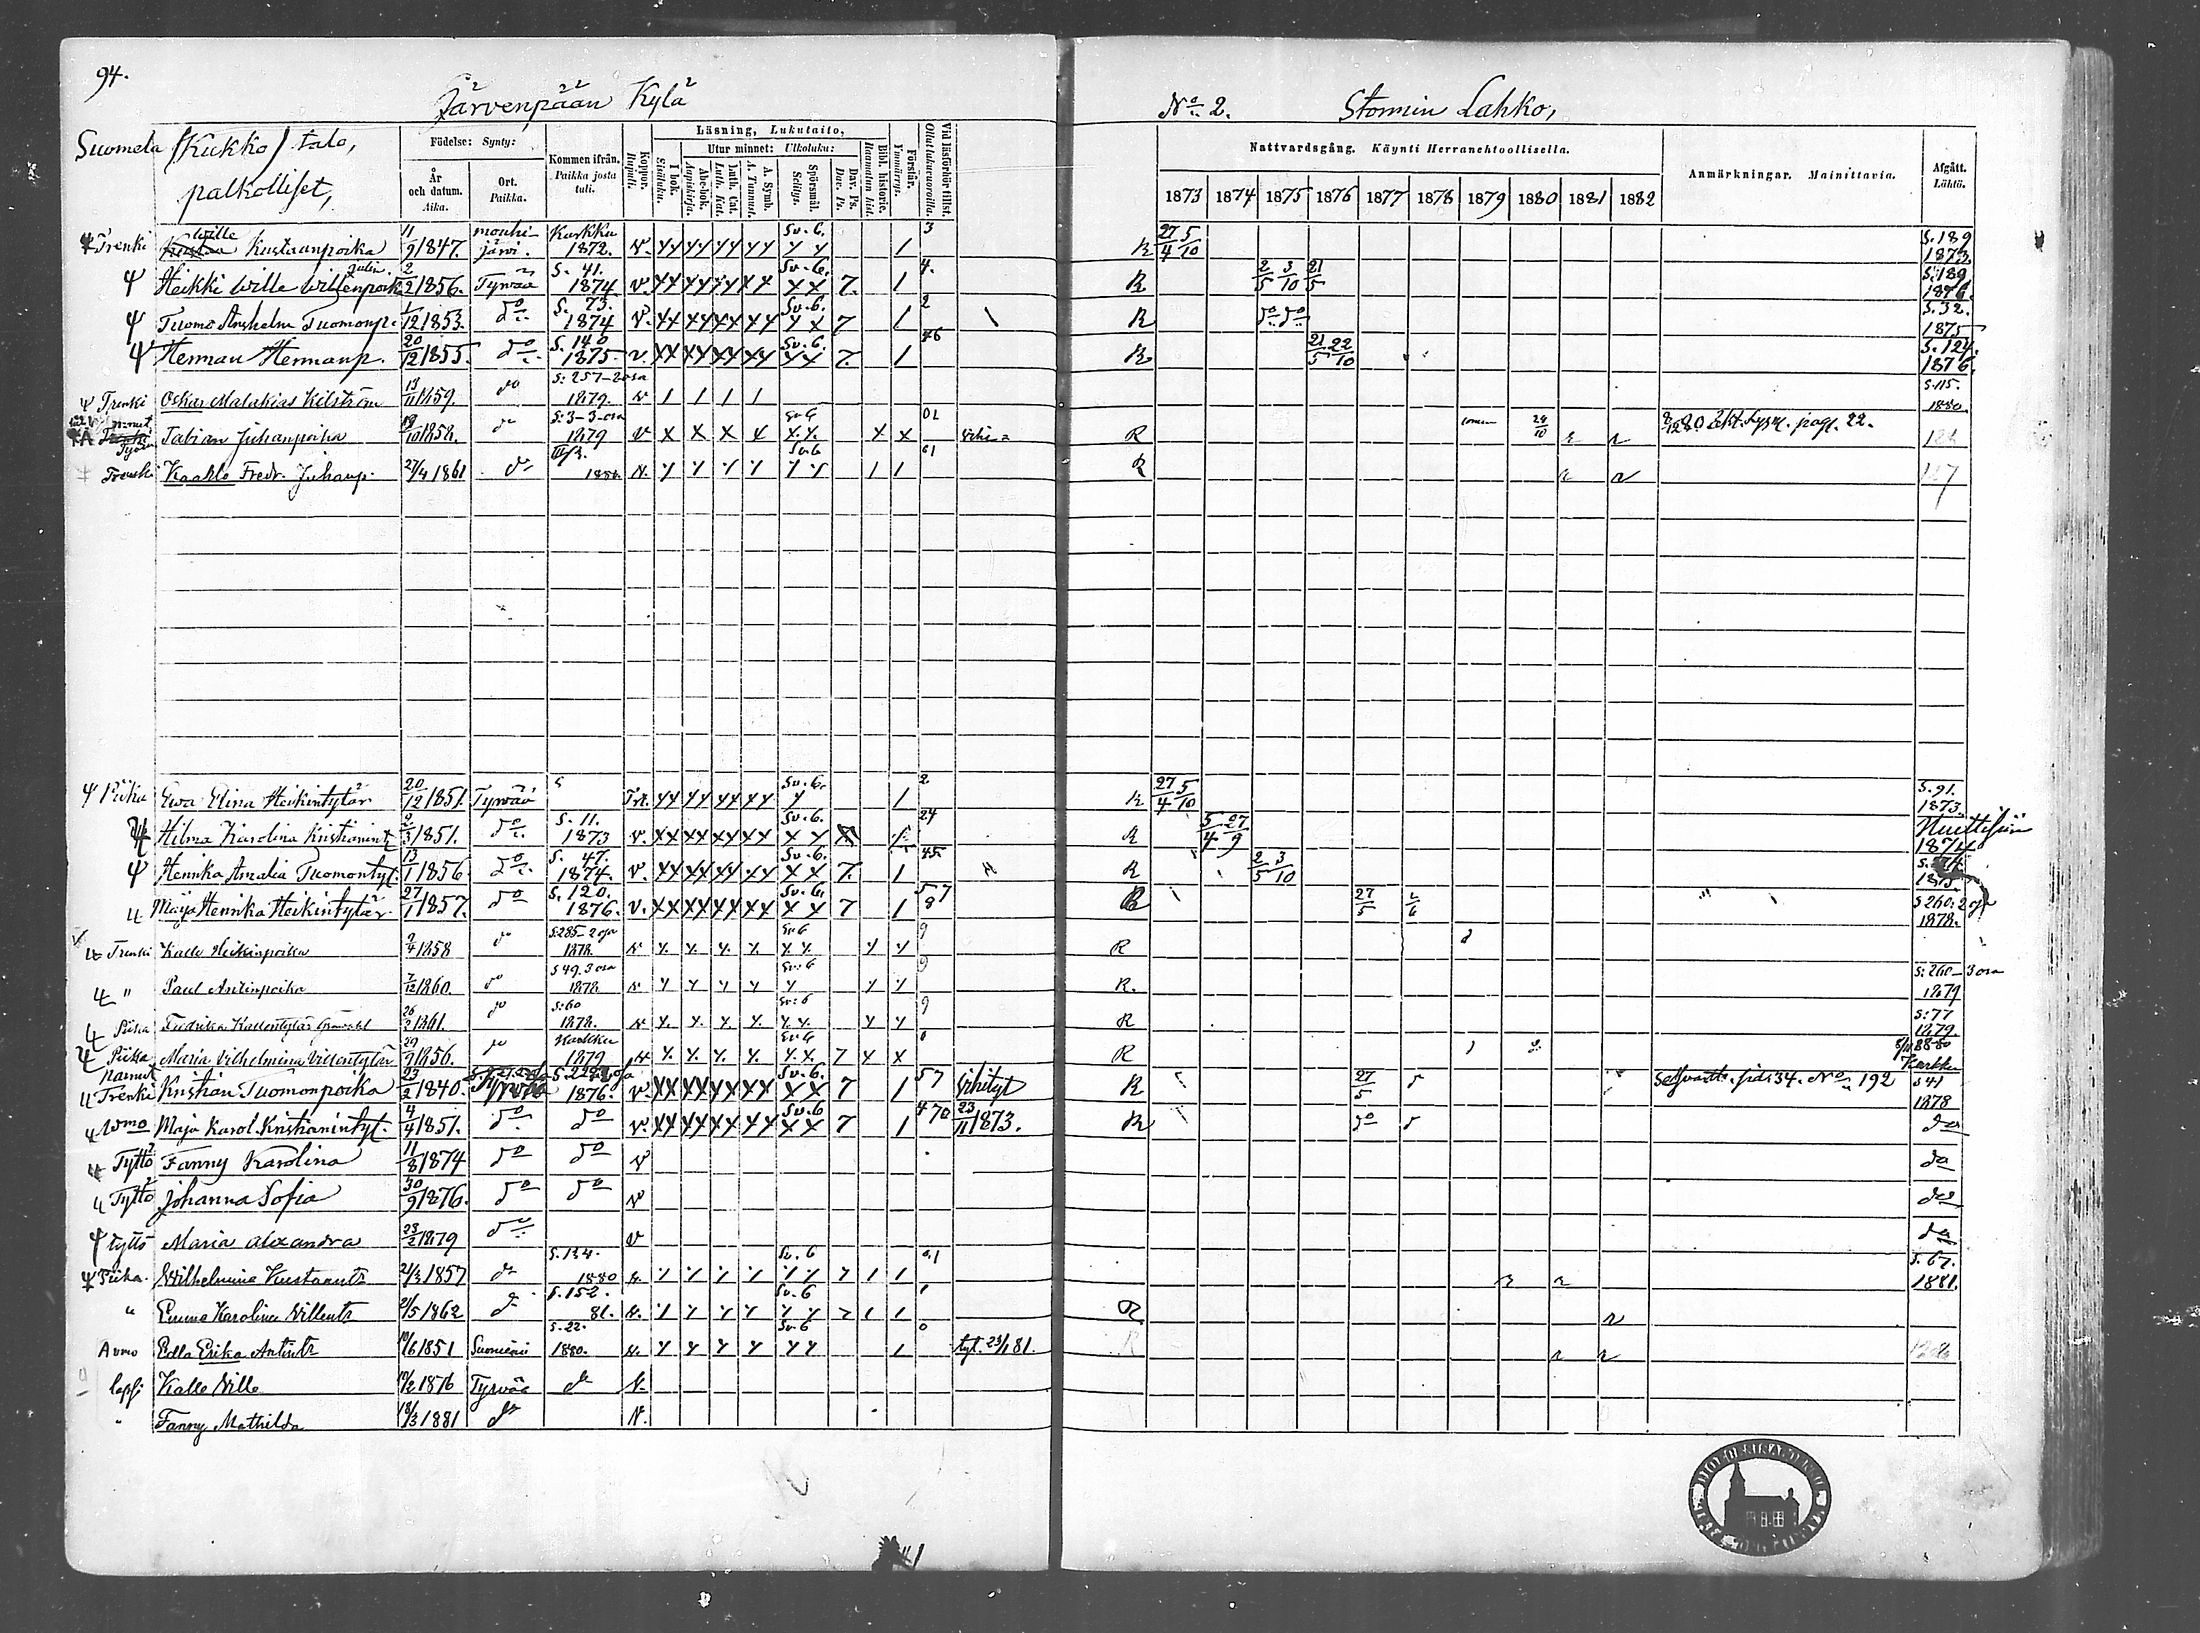 94.
Järvenpään Kylä
No 2. Stormin Lahko,
Suomela (Kukko) talo,
palkolliset,
Födelse: Synty:
År och datum. Aika.
Ort. Paikka.
Kommen ifrån. Paikka josta tuli.
Koppor. Rupuli.
Läsning, Lukutaito,
I bok. Sisäluku.
Utur minnet: Ulkoluku:
Abc-bok. Aapiskirja.
Luth. Cat. Luth. Kat.
A. Symb. A. Tunnust.
Spörsmål. Selitys.
Dav. Ps. Dav. Ps.
Bibl. historie. Raamatun hist.
Förstår. Ymmärrys.
Vid läsförhör tillst. Ollut lukuvuoroilla.
Nattvardsgång. Käynti Herranehtoollisella.
1873 1874 1875 1876 1877 1878 1879 1880 1881 1882
Anmärkningar. Mainittavia.
Afgått. Lähtö.
Trenki Wille Kustaanpoika 11/9 1847. mouhijärvi. Karkku 1872. v. Sv. 6. 3 R 27/4 5/10 S. 189 1873.
Heikki Wille Willenpoik. 2/2 1856. Tyrvää S. 41. 1874 v. Sv. 6. 7. 1 4. R 2/5 3/10 21/5 S. 189 1876.
Tuomo Anshelm Tuomonp. 1/12 1853. do S. 73. 1874 v. Sv. 6. 7 1 2 R do do S. 32. 1875
Herman Hermanp. 20/12 1855. do S. 140 1875 v. Sv. 6. 7. 1 46 R 21/5 22/10 S. 124. 1876.
Trenki Oskar Malakias Kilström 13/11 1859. do S: 257-2 osa 1879. v 1 1 1 1 S. 115. 1880.
Fabian Juhanpoika 19/10 1858. do S: 3-3 osa 1879 v x x x x Sv. 6 x x 01 R 24/10 pag. 22.
Trenki Kaarlo Fredr. Juhanp. 27/4 1861 do 1880. v. Sv. 6 1 1 61 R
Piika Ewa Elina Heikintytär 20/12 1851. Tyrvää Sv. 6. 1 2 R 27/4 5/10 S. 91. 1873.
Hilma Karolina Kristianint. 2/3 1851. do S. 11. 1873 v. Sv. 6. 24 R 5/4 27/9 Huittisiin 1874
Henrika Amalia Tuomontyt. 13/1 1856 do S. 47. 1874. v. Sv. 6. 7. 1 45. R 2/5 3/10
Maija Henrika Heikintytär 27/1 1857. do S. 120. 1876. v. Sv. 6. 7 1 57 8 R 27/5 S 260. 2 osa 1878.
Trenki Kalle Heikinpoika 2/4 1858 do S: 285-2 osa 1878. v Sv. 6 9 R
" Paul Antinpoika 7/12 1860. do S 49. 3 osa 1878 v Sv: 6 9 R. S: 260-3 osa 1879
Piika Fredrika Kallentytär 26/2 1861. do S: 60 1878. v Sv: 6 9 R S: 77 1879.
Piika Maria Vilhelmina Villentytär 29/9 1856. do Karkku 1879 v Sv. 6 7 x x R Karkku
Trenki Kristian Tuomonpoika 23/2 1840. Tyrvää 1876. v. Sv. 6. 7 1 57 Vihityt R 27/5 sid: 34. No 192 S 41 1878
Maja Karol. Kristianintyt. 4/4 1851. do do v. Sv. 6 7 1 470 23/11 1873. R do do
Tyttö Fanny Karolina 11/8 1874 do do v do
Tyttö Johanna Sofia 30/9 1876. do do v do
tyttö Maria Alexandra 23/2 1879 do v do
Piika. Wilhelmina Kustaantr 21/3 1857 do S. 134. 1880 v. Sv. 6 7 1 1 0.1 S. 67. 1881.
" Emma Karolina Villentr 21/5 1862 do S. 152. 81. v. Sv. 6 7 1 1 1 R
Edla Erika Antintr 10/6 1851 Suoniemi S. 22. 1880. v. Sv. 6 1 0 R
lapsi Kalle Ville 10/2 1876 Tyrvää do v.
" Fanny Mathilda 18/3 1881 do v.